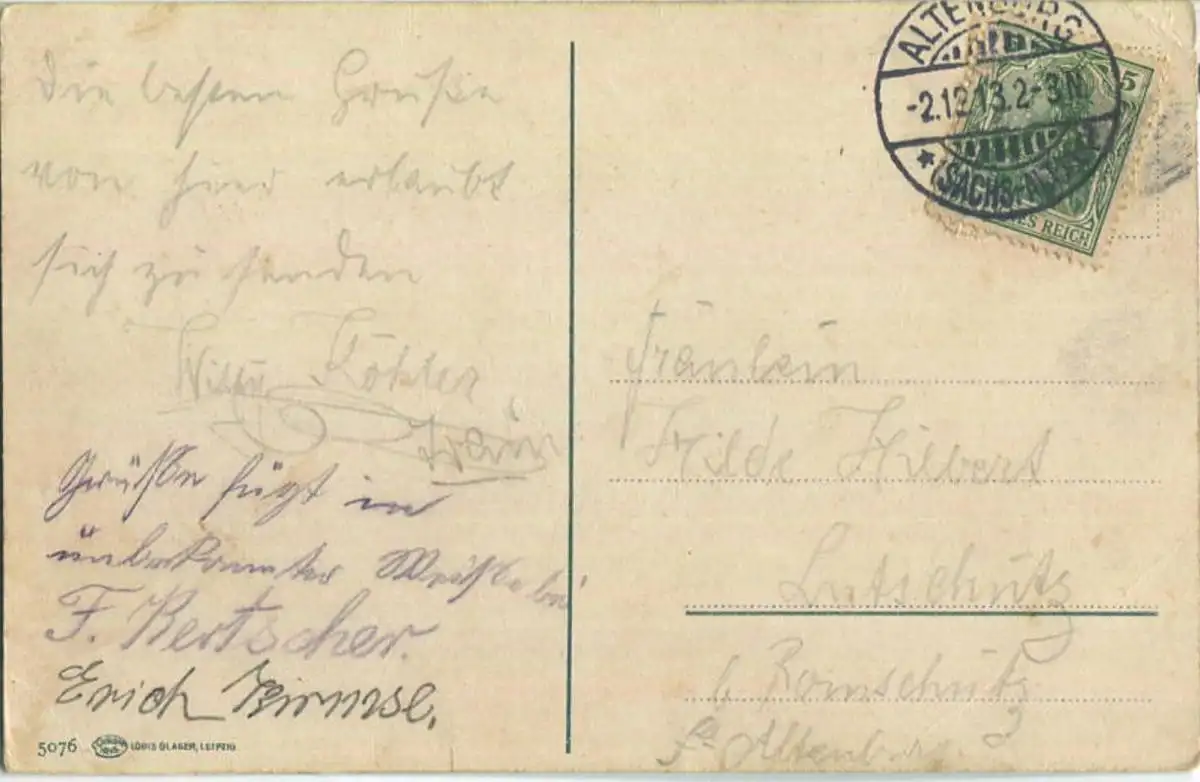 Die besten Grüße
von hier erlaubt
sich zu senden
Willy Köhler
Grüße fügt in
unbekannter Weise bei
F. Bertscher.
Erich
5076 LOUIS GLASER, LEIPZIG
ALTENBURG
-2.12.13.2-3N.
*(SACHS-ALT
5
REICH
Fräulein
Hilde Hilbert
Lutschütz
b. Romschütz
Altenb